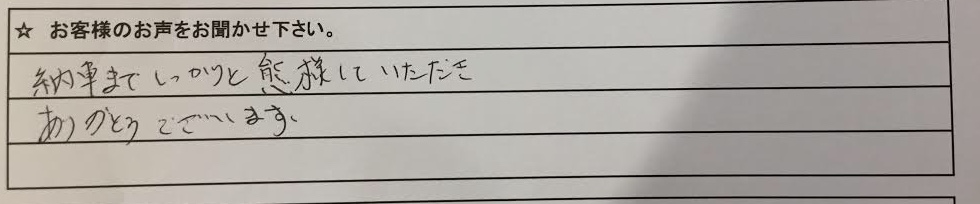 ☆ お客様のお声をお聞かせ下さい。
納車までしっかりと態様していただき
ありがとうございます。